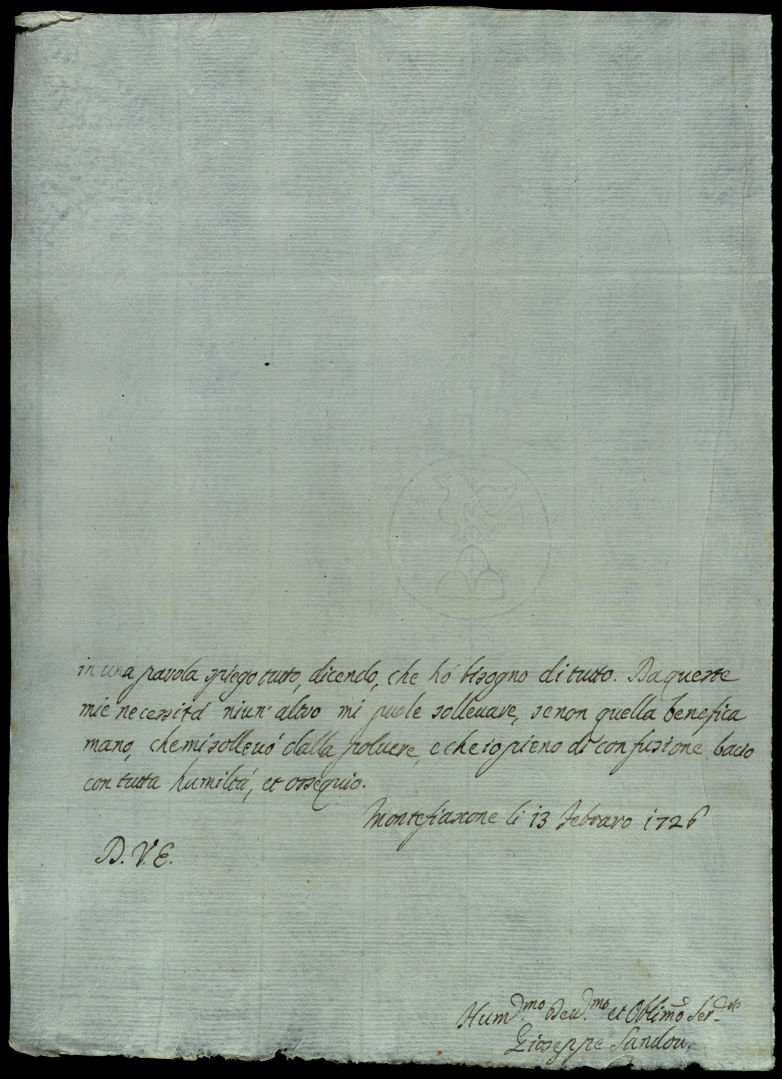 in una parola spiego tutto, dicendo, che hò bisogno di tutto. Da queste
mie necessità niun' altro mi puole sollevare, se non quella benefica
mano, che mi sollevò dalla polvere, e che io pieno di confusione bacio
con tutta humiltà, et ossequio.
Montefiascone li 13 Febraro 1726
D. V. E.
Hum.mo Dev.mo et Oblimo Ser.
Gioseppe